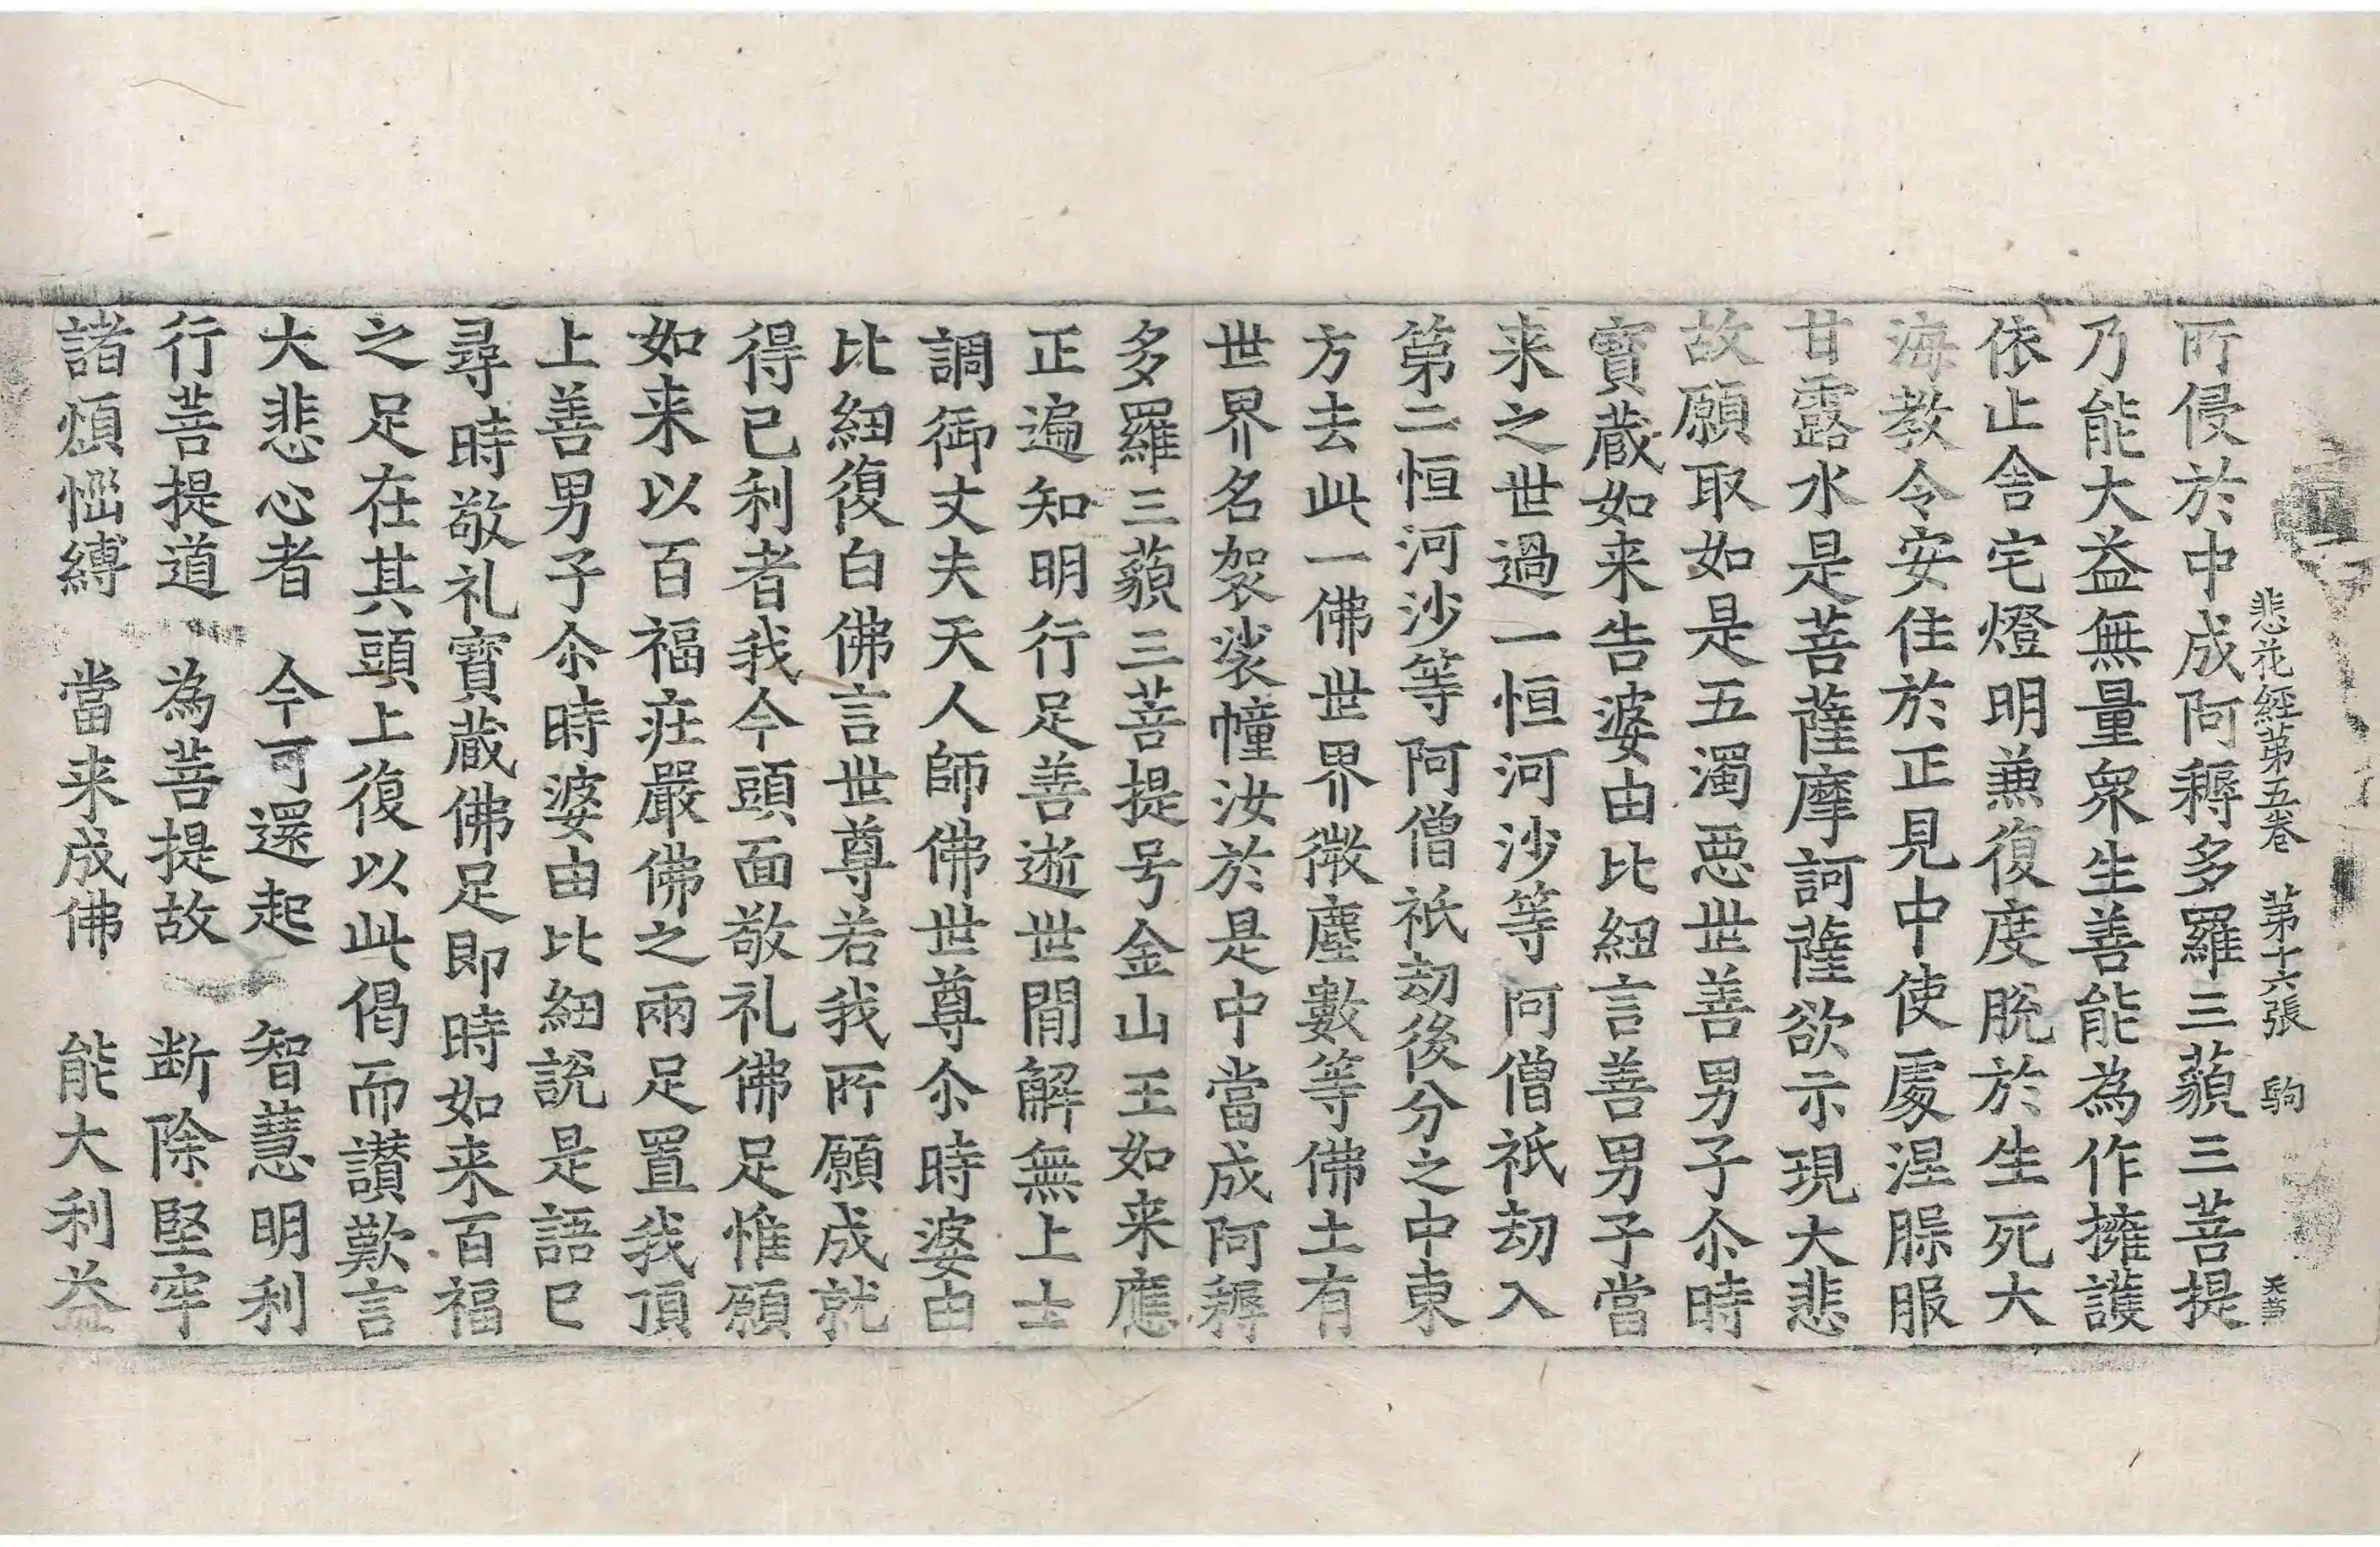 悲花經苐五卷 苐十六張 駒
所侵於中成阿耨多羅三藐三菩提
乃能大益無量衆生善能為作擁護
依止舎宅燈明兼復度脫於生死大
海教令安住於正見中使處涅槃服
甘露水是菩薩摩訶薩欲示現大悲
故願取如是五濁惡世善男子尒時
寶蔵如来告婆由比紐言善男子當
来之世過一恒河沙等阿僧祇劫入
第二恒河沙等阿僧祇劫後分之中東
方去此一佛世界微塵數等佛土有
世界名袈裟幢汝於是中當成阿耨
多羅三藐三菩提号金山王如来應
正遍知明行足善逝世間解無上士
調御丈夫天人師佛世尊尒時婆由
比紐復白佛言世尊若我所願成就
得已利者我今頭面敬礼佛足惟願
如来以百福疘嚴佛之兩足置我頂
上善男子尒時婆由比紐說是語已
尋時敬礼寶蔵佛足即時如来百福
之足在其頭上復以此偈而讃歎言
大悲心者 今可還起 智慧明利
行菩提道 為菩提故 断除堅牢
諸煩惱縛 當来成佛 能大利益